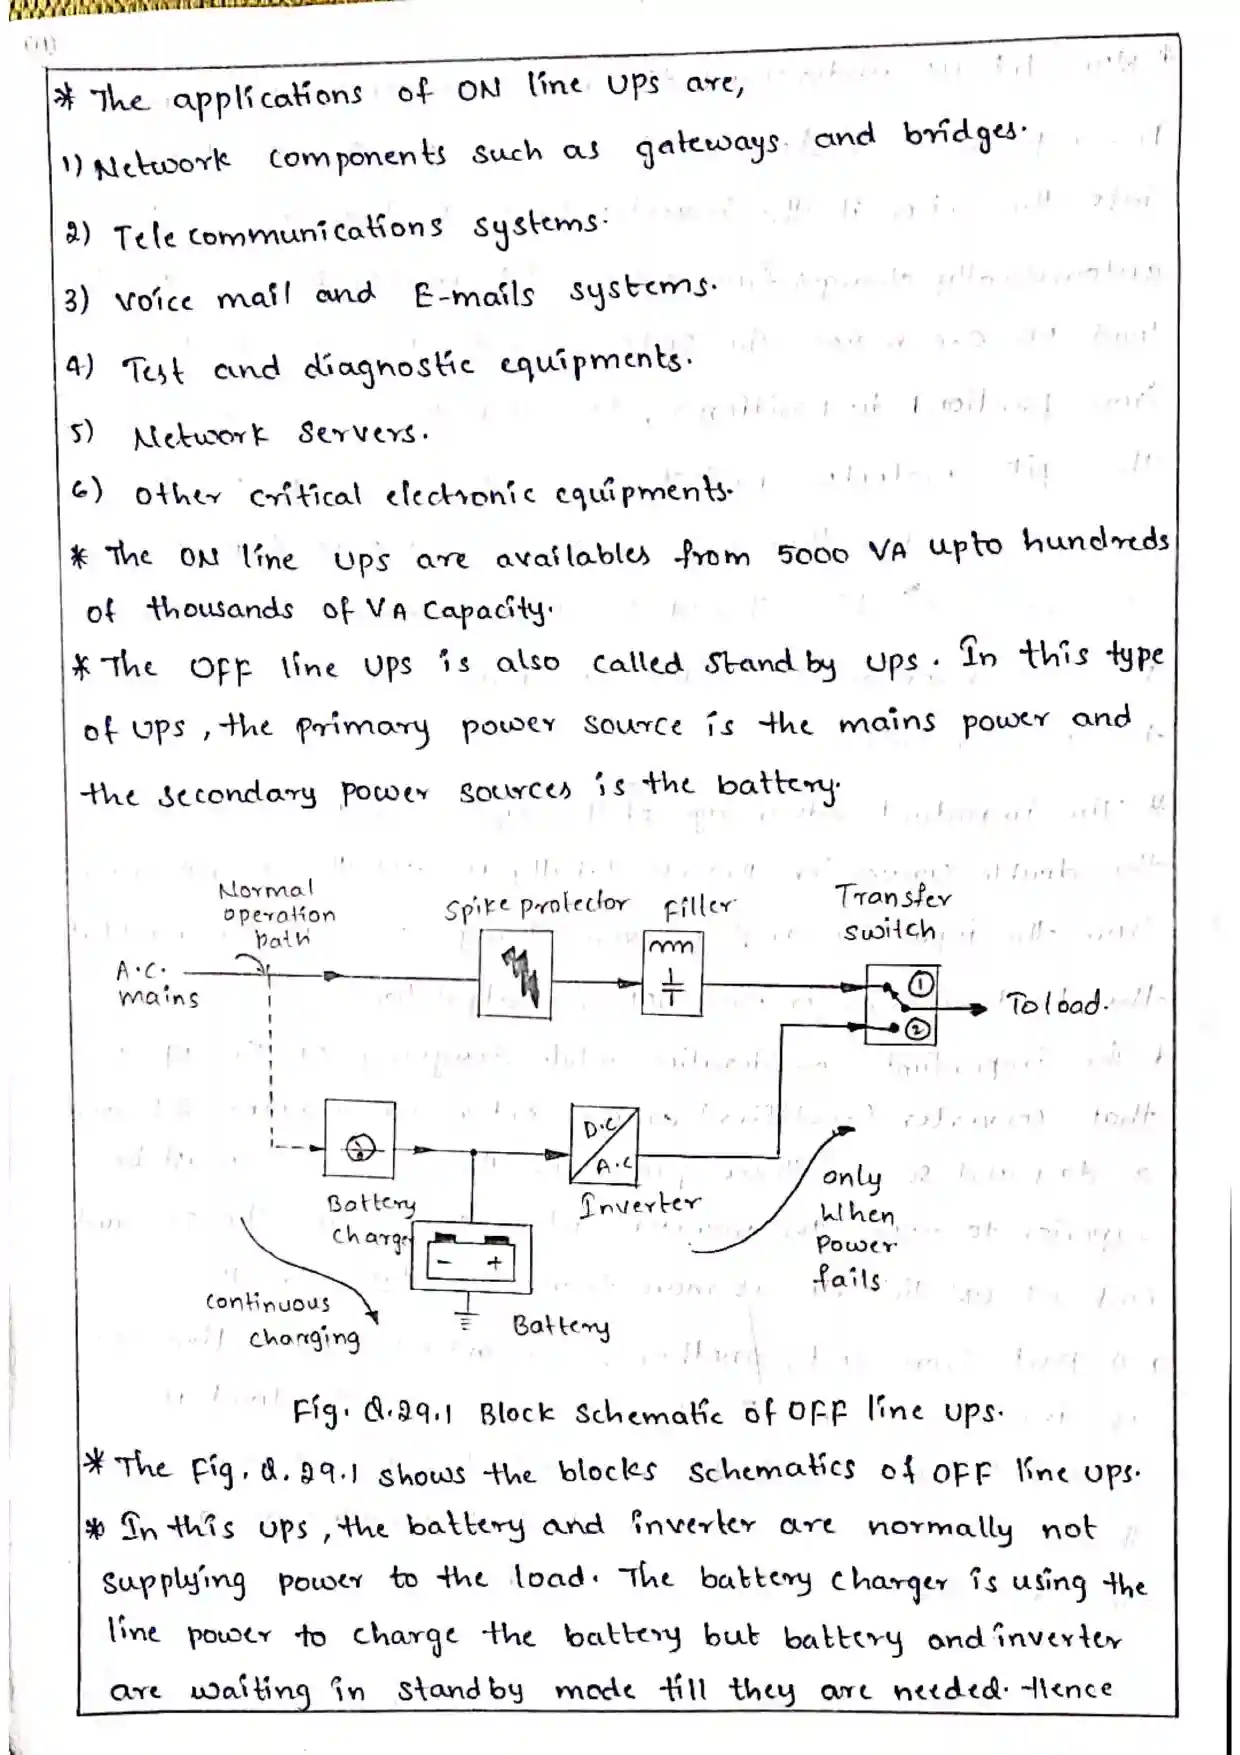 * The applications of ON line UPS are,
1) Network components such as gateways and bridges.
2) Telecommunications systems.
3) Voice mail and E-mails systems.
4) Test and diagnostic equipments.
5) Network Servers.
6) other critical electronic equipments.
* The ON line UPS are availables from 5000 VA upto hundreds
of thousands of VA Capacity.
* The OFF line UPS is also called Stand by UPS. In this type
of UPS, the primary power source is the mains power and
the secondary power sources is the battery.
Normal
operation
path
Spike protector
Filler
Transfer
switch
A.C.
mains
1
To load.
2
D.C
A.C
Battery
charger
Inverter
only
When
Power
fails
- +
continuous
charging
Battery
Fig. Q.29.1 Block Schematic of OFF line UPS.
* The Fig. Q.29.1 shows the blocks schematics of OFF line UPS.
* In this UPS, the battery and inverter are normally not
supplying power to the load. The battery charger is using the
line power to charge the battery but battery and inverter
are waiting in standby mode till they are needed. Hence